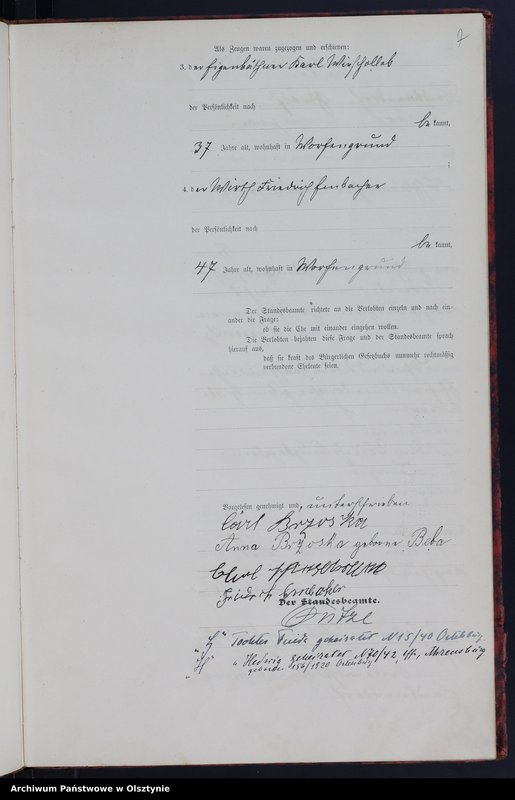 7
Als Zeugen waren zugezogen und erschienen:
3. der Eigenkäthner Karl
der Persönlichkeit nach
be kannt,
37 Jahre alt, wohnhaft in Worfengrund
;
4. der Wirth Friedrich Embacher
der Persönlichkeit nach
be kannt,
47 Jahre alt, wohnhaft in Worfengrund
Der Standesbeamte richtete an die Verlobten einzeln und nach ein-
ander die Frage:
ob sie die Ehe mit einander eingehen wollen.
Die Verlobten bejahten diese Frage und der Standesbeamte sprach
hierauf aus,
daß sie kraft des Bürgerlichen Gesetzbuchs nunmehr rechtmäßig
verbundene Eheleute seien.
Vorgelesen genehmigt und, unterschrieben
Carl Brzoska
Anna Brzoska geborne Beba
Friedrich Embacher
Der Standesbeamte.
Tochter geheiratet N 15/40 Ortelsburg
" Hedwig geheiratet N 70/42
156/1920 Ortelsburg
Archiwum Państwowe w Olsztynie